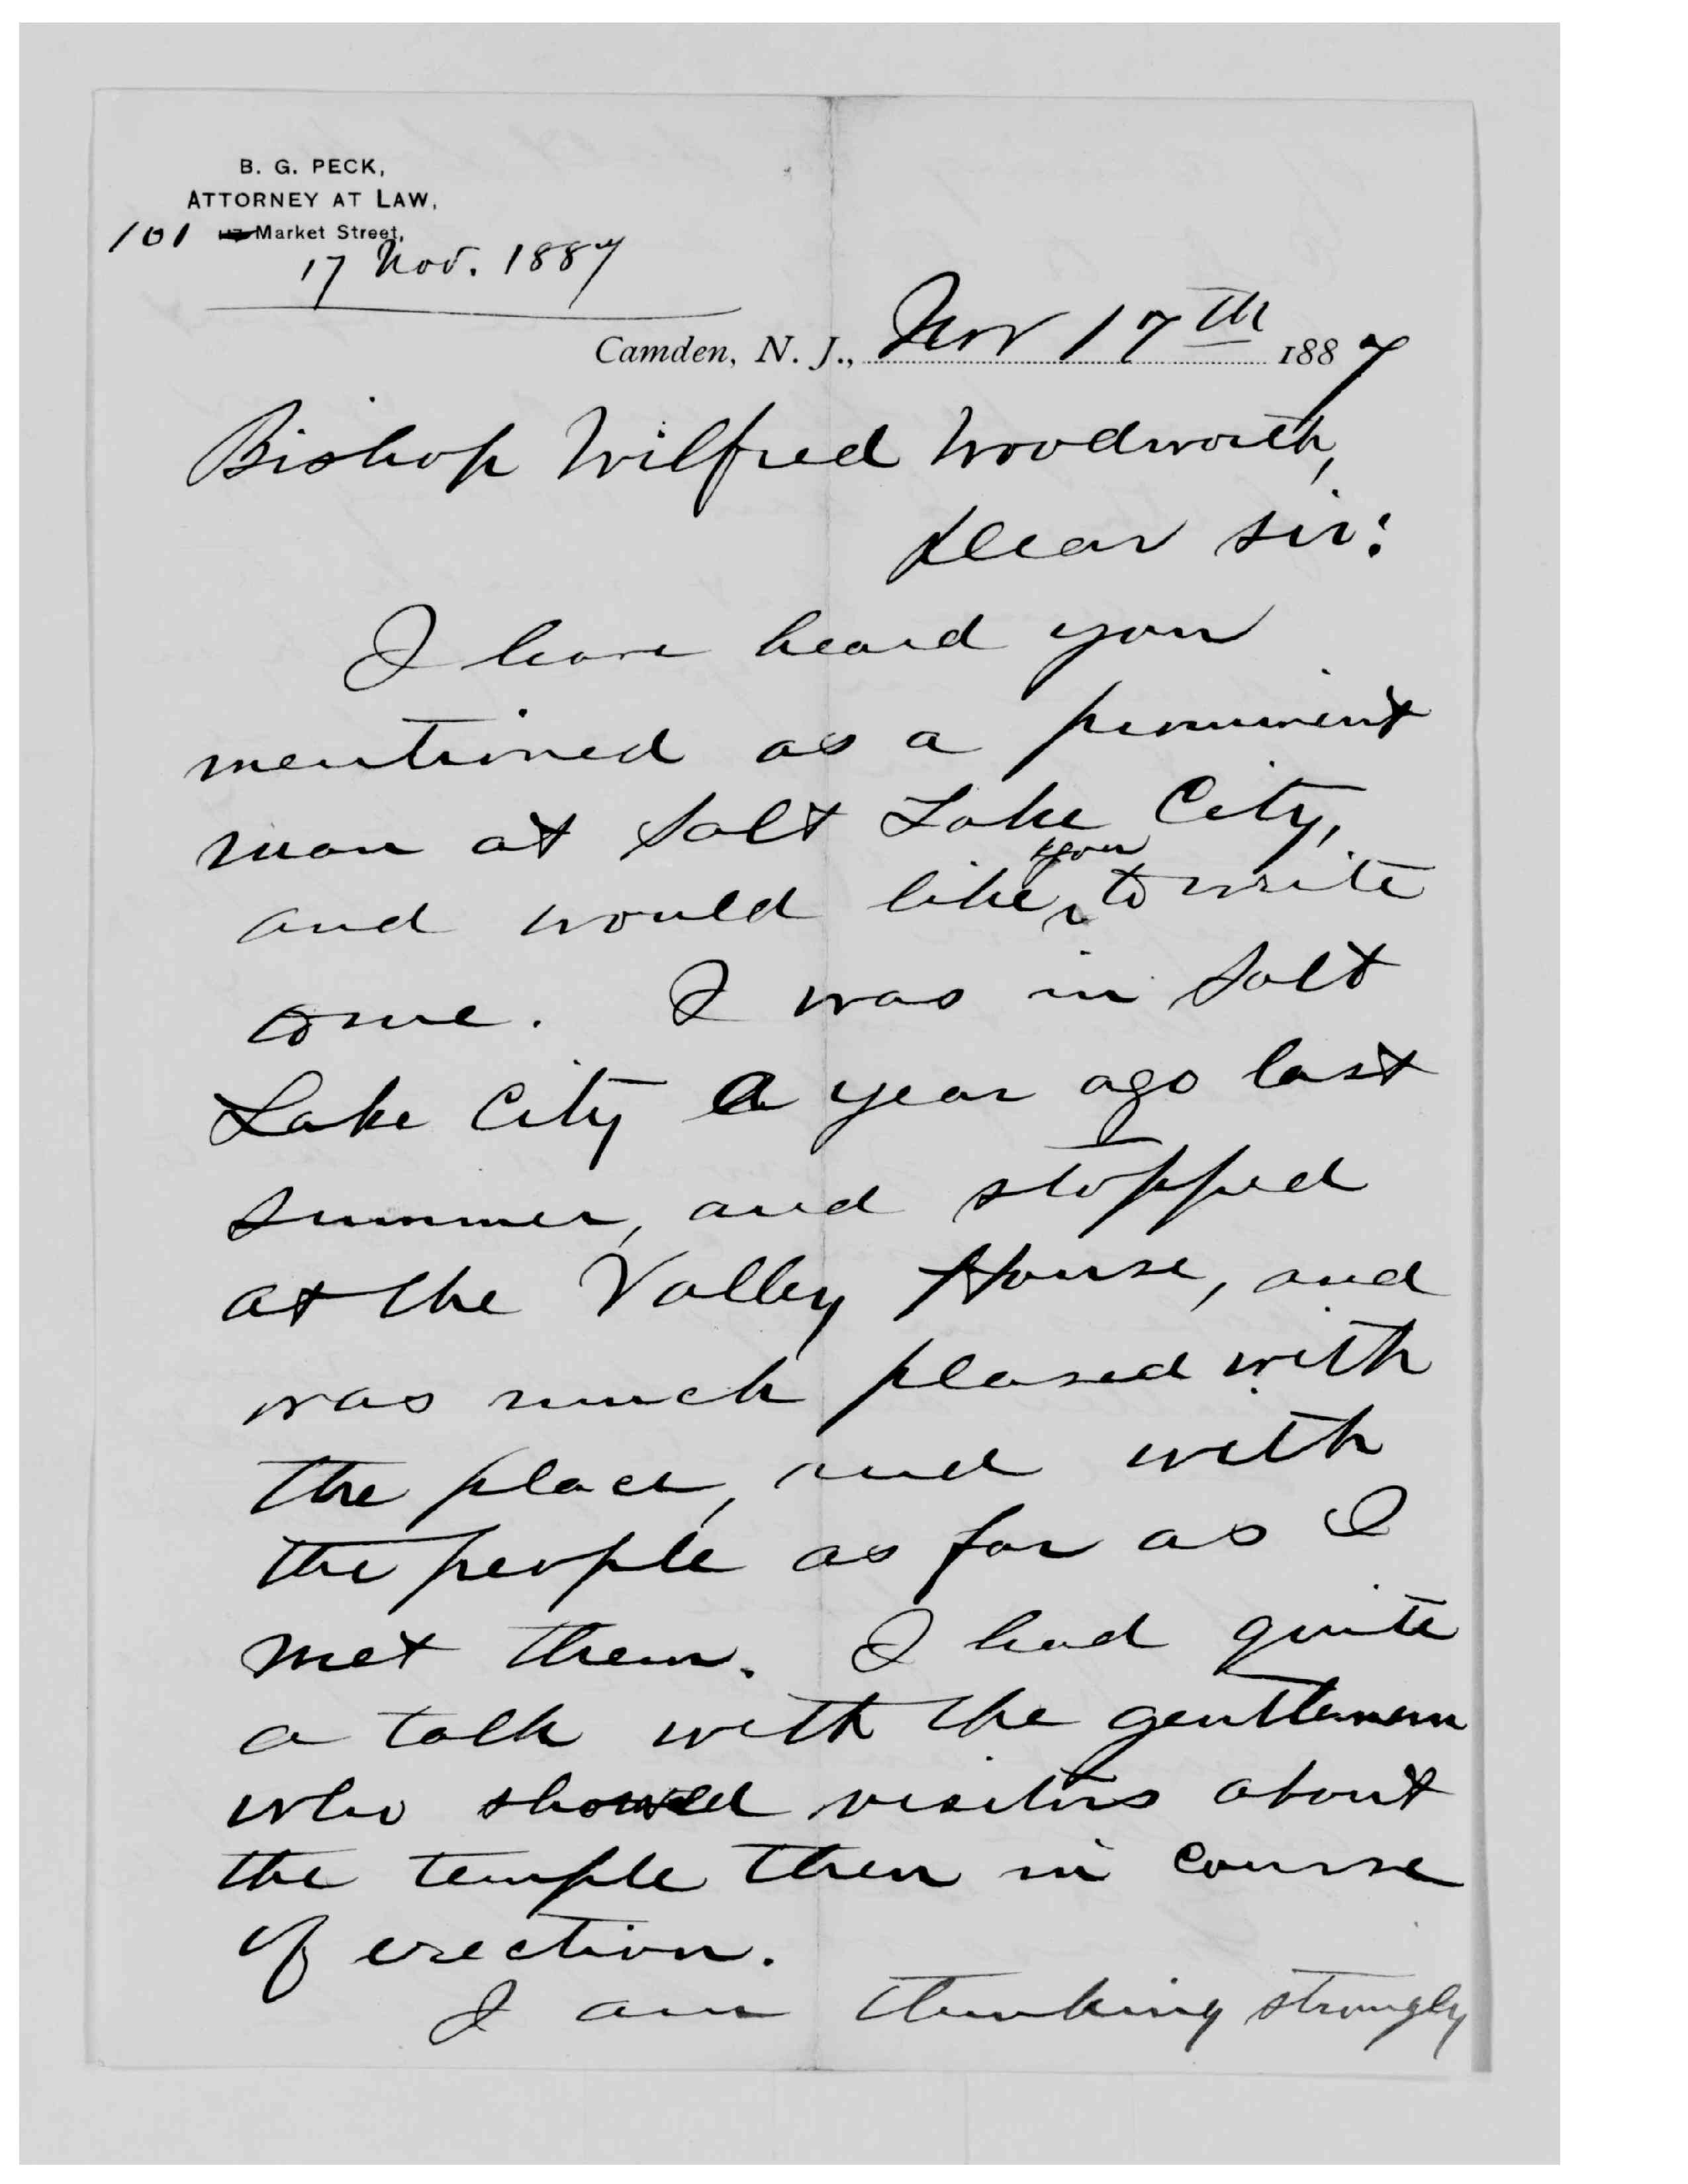 B. G. PECK,
ATTORNEY AT LAW,
101 Market Street,
17 Nov. 1887
Camden, N. J., Nov 17th 1887
Bishop Wilfred Woodworth,
Dear sir:
I have heard you
mentioned as a prominent
man at Salt Lake City,
and would like you to write
to me. I was in Salt
Lake City a year ago last
summer, and stopped
at the Valley House, and
was much pleased with
the place, and with
the people as far as I
met them. I had quite
a talk with the gentleman
who showed visitors about
the temple then in course
of erection.
I am thinking strongly